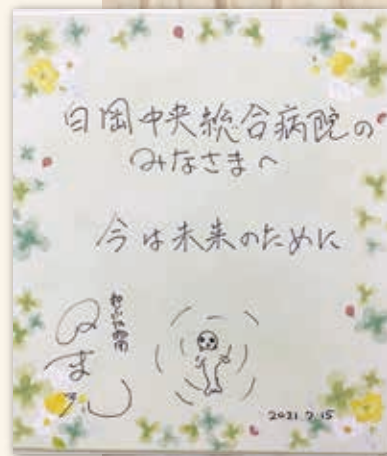 白岡中央総合病院の
みなさまへ
今は未来のために
2021.7.15